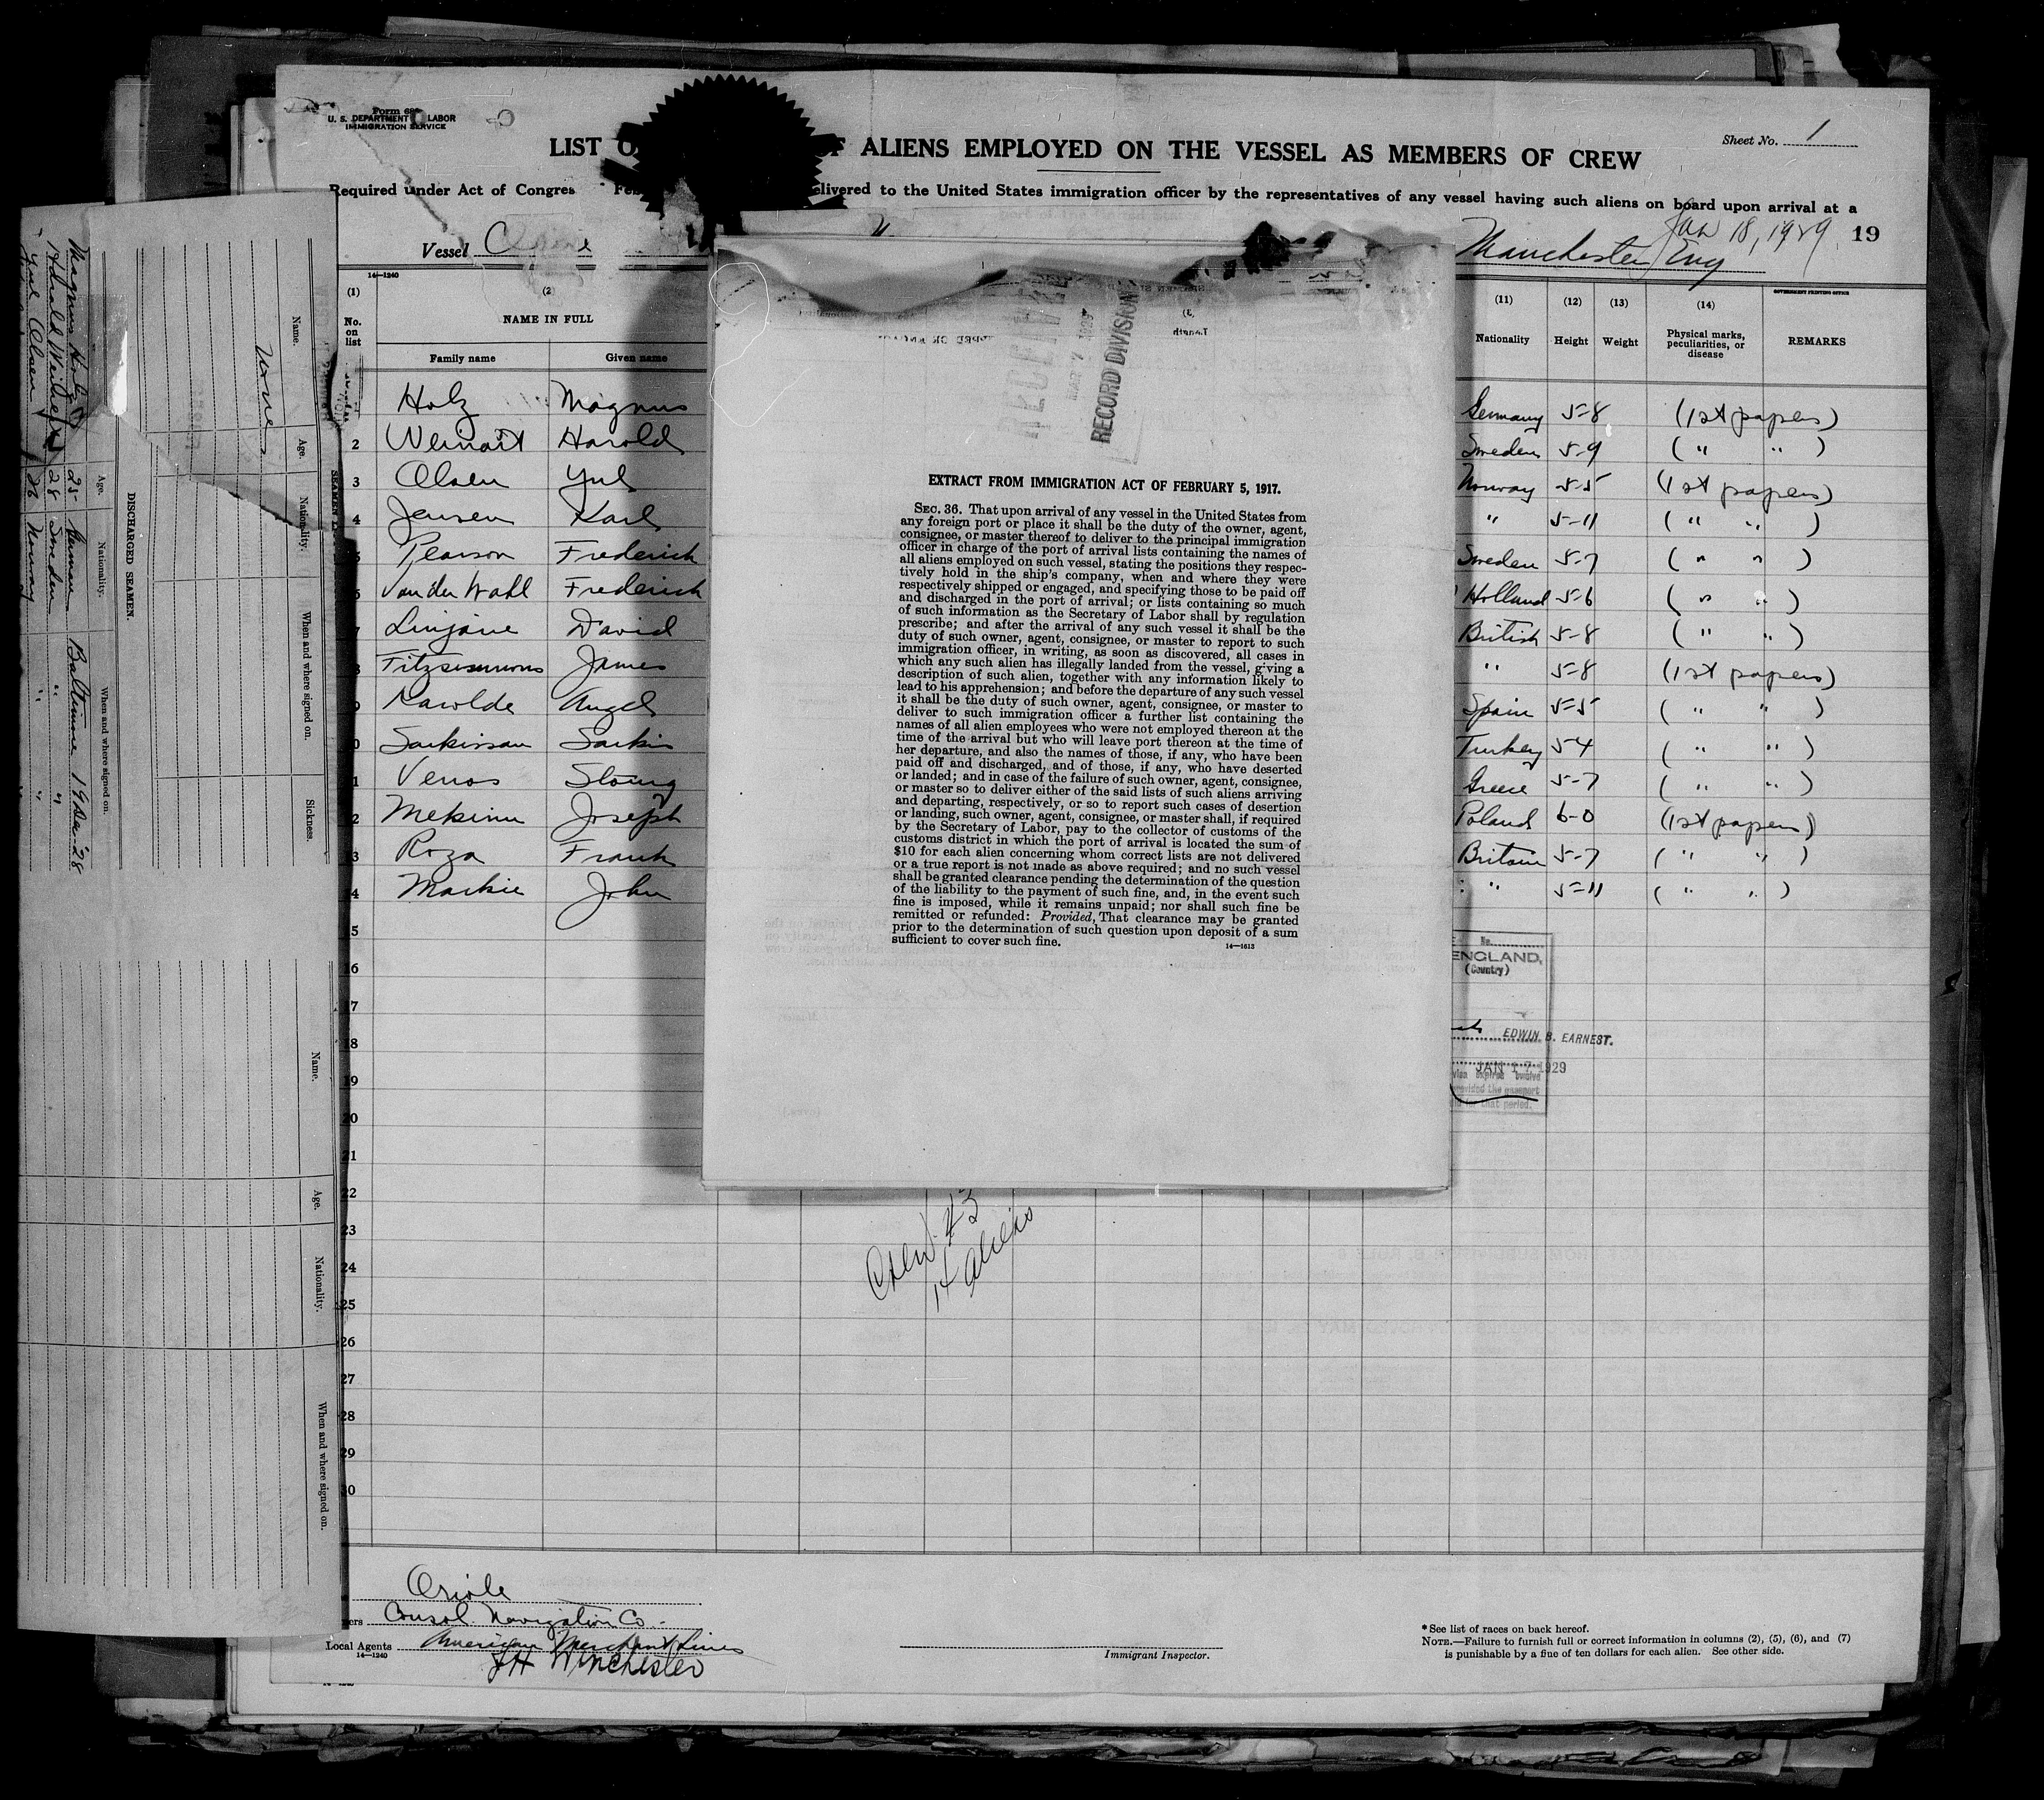 Form 68
U. S. DEPARTMENT LABOR
IMMIGRATION SERVICE
Sheet No. 1
LIST O F ALIENS EMPLOYED ON THE VESSEL AS MEMBERS OF CREW
Required under Act of Congres Feb elivered to the United States immigration officer by the representatives of any vessel having such aliens on board upon arrival at a
Vessel
Manchester Eng Jan 18, 1929 19
14—1240
GOVERNMENT PRINTING OFFICE
(1) (2 (11) (12) (13) (14)
No. on list NAME IN FULL Nationality Height Weight Physical marks, peculiarities, or disease REMARKS
Family name Given name
Holz Magnus Germany 5-8 (1st papers)
2 Weinart Harold Sweden 5-9 ( " " )
3 Olsen Yul Norway 5-5 (1st papers)
4 Jensen Karl " 5-11 ( " " )
5 Pearson Frederick Sweden 5-7 ( " " )
Van der Wahl Frederick Holland 5-6 ( " " )
Linjane David British 5-8 ( " " )
Fitzsimmons James " 5-8 (1st papers)
Rawolde Angel Spain 5-5 ( " " )
0 Sarkissan Sarkis Turkey 5-4 ( " " )
1 Venos Greece 5-7 ( " " )
2 Mekinn Joseph Poland 6-0 (1st papers)
3 Roza Frank Britain 5-7 ( " " )
4 Markie John " 5-11 ( " " )
15
16
17
18
19
20
21
22
23
24
25
26
27
28
29
30
RECEIVED
MAR 7 1929
RECORD DIVISION
EXTRACT FROM IMMIGRATION ACT OF FEBRUARY 5, 1917.
SEC. 36. That upon arrival of any vessel in the United States from
any foreign port or place it shall be the duty of the owner, agent,
consignee, or master thereof to deliver to the principal immigration
officer in charge of the port of arrival lists containing the names of
all aliens employed on such vessel, stating the positions they respec-
tively hold in the ship's company, when and where they were
respectively shipped or engaged, and specifying those to be paid off
and discharged in the port of arrival; or lists containing so much
of such information as the Secretary of Labor shall by regulation
prescribe; and after the arrival of any such vessel it shall be the
duty of such owner, agent, consignee, or master to report to such
immigration officer, in writing, as soon as discovered, all cases in
which any such alien has illegally landed from the vessel, giving a
description of such alien, together with any information likely to
lead to his apprehension; and before the departure of any such vessel
it shall be the duty of such owner, agent, consignee, or master to
deliver to such immigration officer a further list containing the
names of all alien employees who were not employed thereon at the
time of the arrival but who will leave port thereon at the time of
her departure, and also the names of those, if any, who have been
paid off and discharged, and of those, if any, who have deserted
or landed; and in case of the failure of such owner, agent, consignee,
or master so to deliver either of the said lists of such aliens arriving
and departing, respectively, or so to report such cases of desertion
or landing, such owner, agent, consignee, or master shall, if required
by the Secretary of Labor, pay to the collector of customs of the
customs district in which the port of arrival is located the sum of
$10 for each alien concerning whom correct lists are not delivered
or a true report is not made as above required; and no such vessel
shall be granted clearance pending the determination of the question
of the liability to the payment of such fine, and, in the event such
fine is imposed, while it remains unpaid; nor shall such fine be
remitted or refunded: Provided, That clearance may be granted
prior to the determination of such question upon deposit of a sum
sufficient to cover such fine.
14—1613
No.
ENGLAND,
(Country)
EDWIN B. EARNEST.
JAN 17 1929
provided the passport
for that period.
Crew 43
14 aliens
Oriole
ers Consol. Navigation Co.
Local Agents American Merchant Lines
14—1240
JH Winchester
Immigrant Inspector.
* See list of races on back hereof.
NOTE.—Failure to furnish full or correct information in columns (2), (5), (6), and (7)
is punishable by a fine of ten dollars for each alien. See other side.
Name. Age. Nationality. When and where signed on. Sickness.
None
DISCHARGED SEAMEN.
Name. Age. Nationality. When and where signed on.
Magnus Holz 25 German Baltimore 19 Dec '28
28 Sweden " "
Yul Olsen 26 Norway " "
Name. Age. Nationality. When and where signed on.